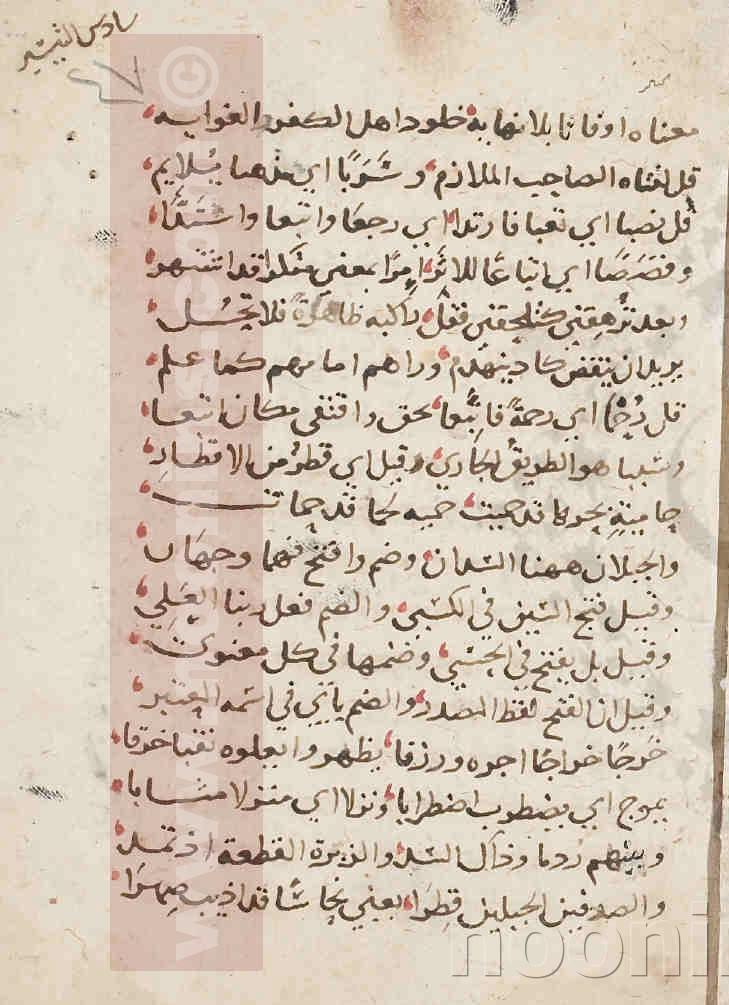 سادس التيسير
معناه اوقاتا بلا نهايه خلود اهل الكفر والغوايه
قل لفتاه الصاحب الملازم وسربا اي مذهبا يلايم
قل نصبا اي تعبا فارتدا اي رجعا واتبعا واشتدا
وقصصا اي اتباعا للاثر امرا بمعنى منكرا قد اشتهر
وبعد ترهقني كتلحقني فقل زاكيه طاهرة فلا تحل
يريد ان ينقض كاد ينهدم وراهم امامهم كما علم
قل رُحما اي رحمة فاتبعا لحق واقتفى مكان اتبعا
وسببا هو الطريق الجاري وقيل اي قطر من الاقطار
حامية بحرها قد حميت حميه لحماة قد حمات
والجبلان ههنا السدان وضم وافتح فيهما وجهان
وقيل فتح السين في الكسبي والضم فعل ربنا العلي
وقيل بل يفتح في الحسي وضمها في كل معنوي
وقيل ان الفتح لفظ المصدر والضم ياتي في اسمه المعتبر
خرجا خراجا اجره ورزقا يظهروا يعلوه نقبا خرقا
يموج اي يضطرب اضطرابا ونزلا اي منزلا مثابا
وبينهم ردما وذاك السد والزبرة القطعة اذ تمد
والصدفين الجبلين قطرا يعني نحاسا قد اذيب صهرا
www.
©
noonin